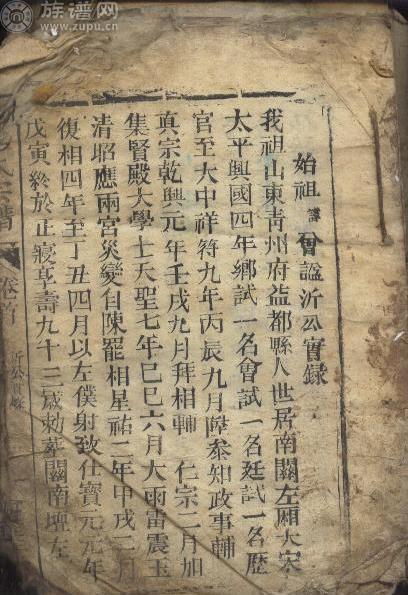 族谱网
www.zupu.cn
始祖諱曾諡沂公實錄
我祖山東青州府益都縣人世居南關左廂大宋
太平興國四年鄉試一名會試一名廷試一名歷
官至大中祥符九年丙辰九月陞叅知政事輔
真宗乾興元年壬戌九月拜相輔 仁宗二月加
集賢殿大學士天聖七年己巳六月大雨雷震玉
清昭應兩宮災變自陳罷相星祐二年甲戌二月
復相四年至丁丑四月以左僕射致仕寶元元年
戊寅終於正寢享壽九十三歲勅葬關南壇左
氏宗譜
卷首
沂公實錄